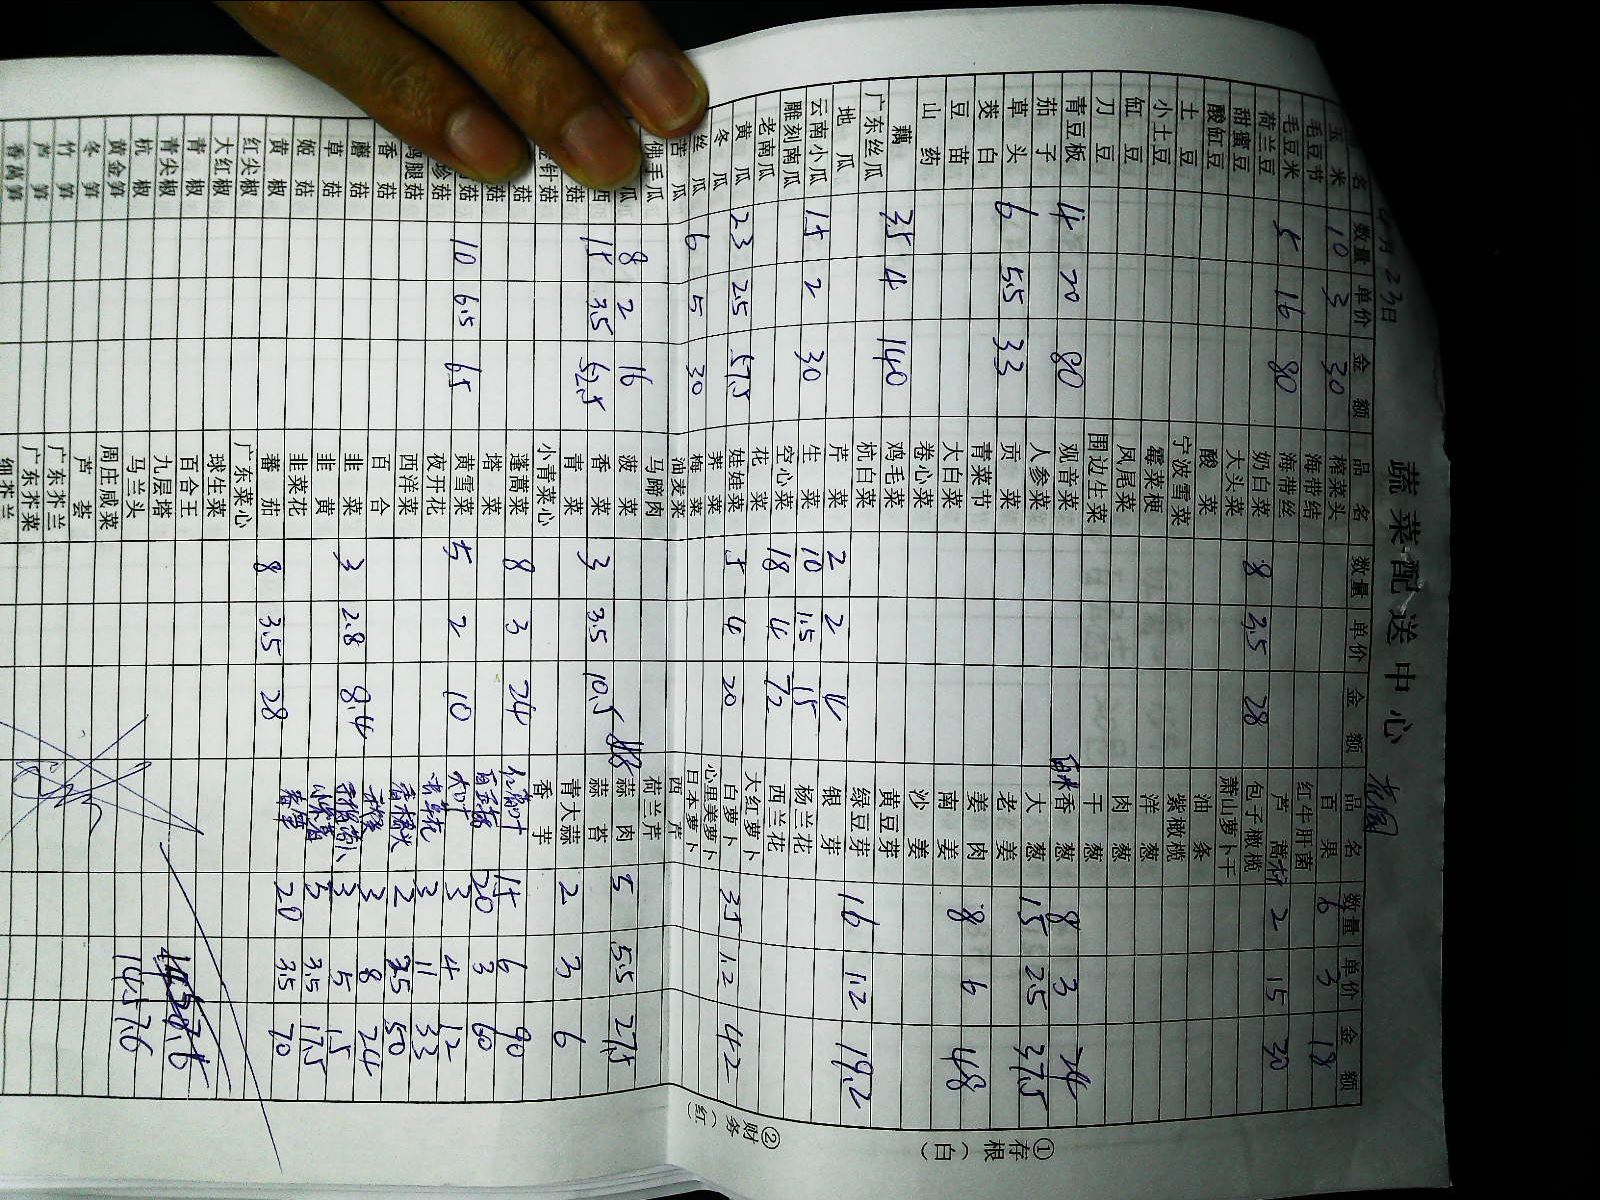 蔬菜配送中心
月23日
品名 数量 单价 金额 品名 数量 单价 金额
名 数量 单价 金额
玉米 10 3 30 榨菜头 百果 6 3 18
毛豆节 海带结 红牛肝菌
毛豆米 5 16 80 海带丝 芦蒿 2 15 30
荷兰豆 奶白菜 8 3.5 28 包子橄榄
甜蜜豆 大头菜 萧山萝卜干
酸缸豆 酸菜 油条
土豆 宁波雪菜 紫橄榄
小土豆 霉菜梗 洋葱
缸豆 凤尾菜 肉葱
刀豆 围边生菜 干葱
青豆板 4 20 80 观音菜 香葱 8 3 24
茄子 人参菜 大葱 15 2.5 37.5
草头 6 5.5 33 贡菜 老姜
茭白 青菜节 姜肉 8 6 48
豆苗 大白菜 南姜
山药 卷心菜 沙姜
藕 鸡毛菜 黄豆芽
广东丝瓜 35 4 140 杭白菜 绿豆芽 16 1.2 19.2
地瓜 芹菜 2 2 4 银芽
云南小瓜 15 2 30 生菜 10 1.5 15 杨兰花
雕刻南瓜 空心菜 18 4 72 西兰花
老南瓜 花菜 大红萝卜
黄瓜 23 2.5 57.5 娃娃菜 5 4 20 白萝卜 35 1.2 42
冬瓜 荠菜 心里美萝卜
丝瓜 6 5 30 梅菜 日本萝卜
苦瓜 油麦菜 西芹
佛手瓜 马蹄肉 荷兰芹
瓜 8 2 16 菠菜 蒜肉 5 5.5 27.5
西 15 3.5 52.5 香菜 3 3.5 10.5 蒜苔
菇 青菜 青大蒜 2 3 6
针菇 小青菜心 香芋
菇 蓬蒿菜 8 3 24 15 6 90
菇 塔菜 20 3 60
菇 10 6.5 65 黄雪菜 5 2 10 3 4 12
珍菇 夜开花 3 11 33
腿菇 西洋菜 2 25 50
香菇 百合 3 8 24
蘑菇 韭菜 3 2.8 8.4 3 5 1.5
草菇 韭黄 5 3.5 17.5
姬菇 韭菜花 20 3.5 70
黄椒 蕃茄 8 3.5 28
红尖椒 广东菜心
大红椒 球生菜
青椒 百合王
青尖椒 九层塔
杭椒 马兰头 1457.6
黄金笋 周庄咸菜
冬笋 芦荟
竹笋 广东芥兰
芦笋 广东芥菜
香莴笋 细芥兰
①存根（白）
②财务（红）